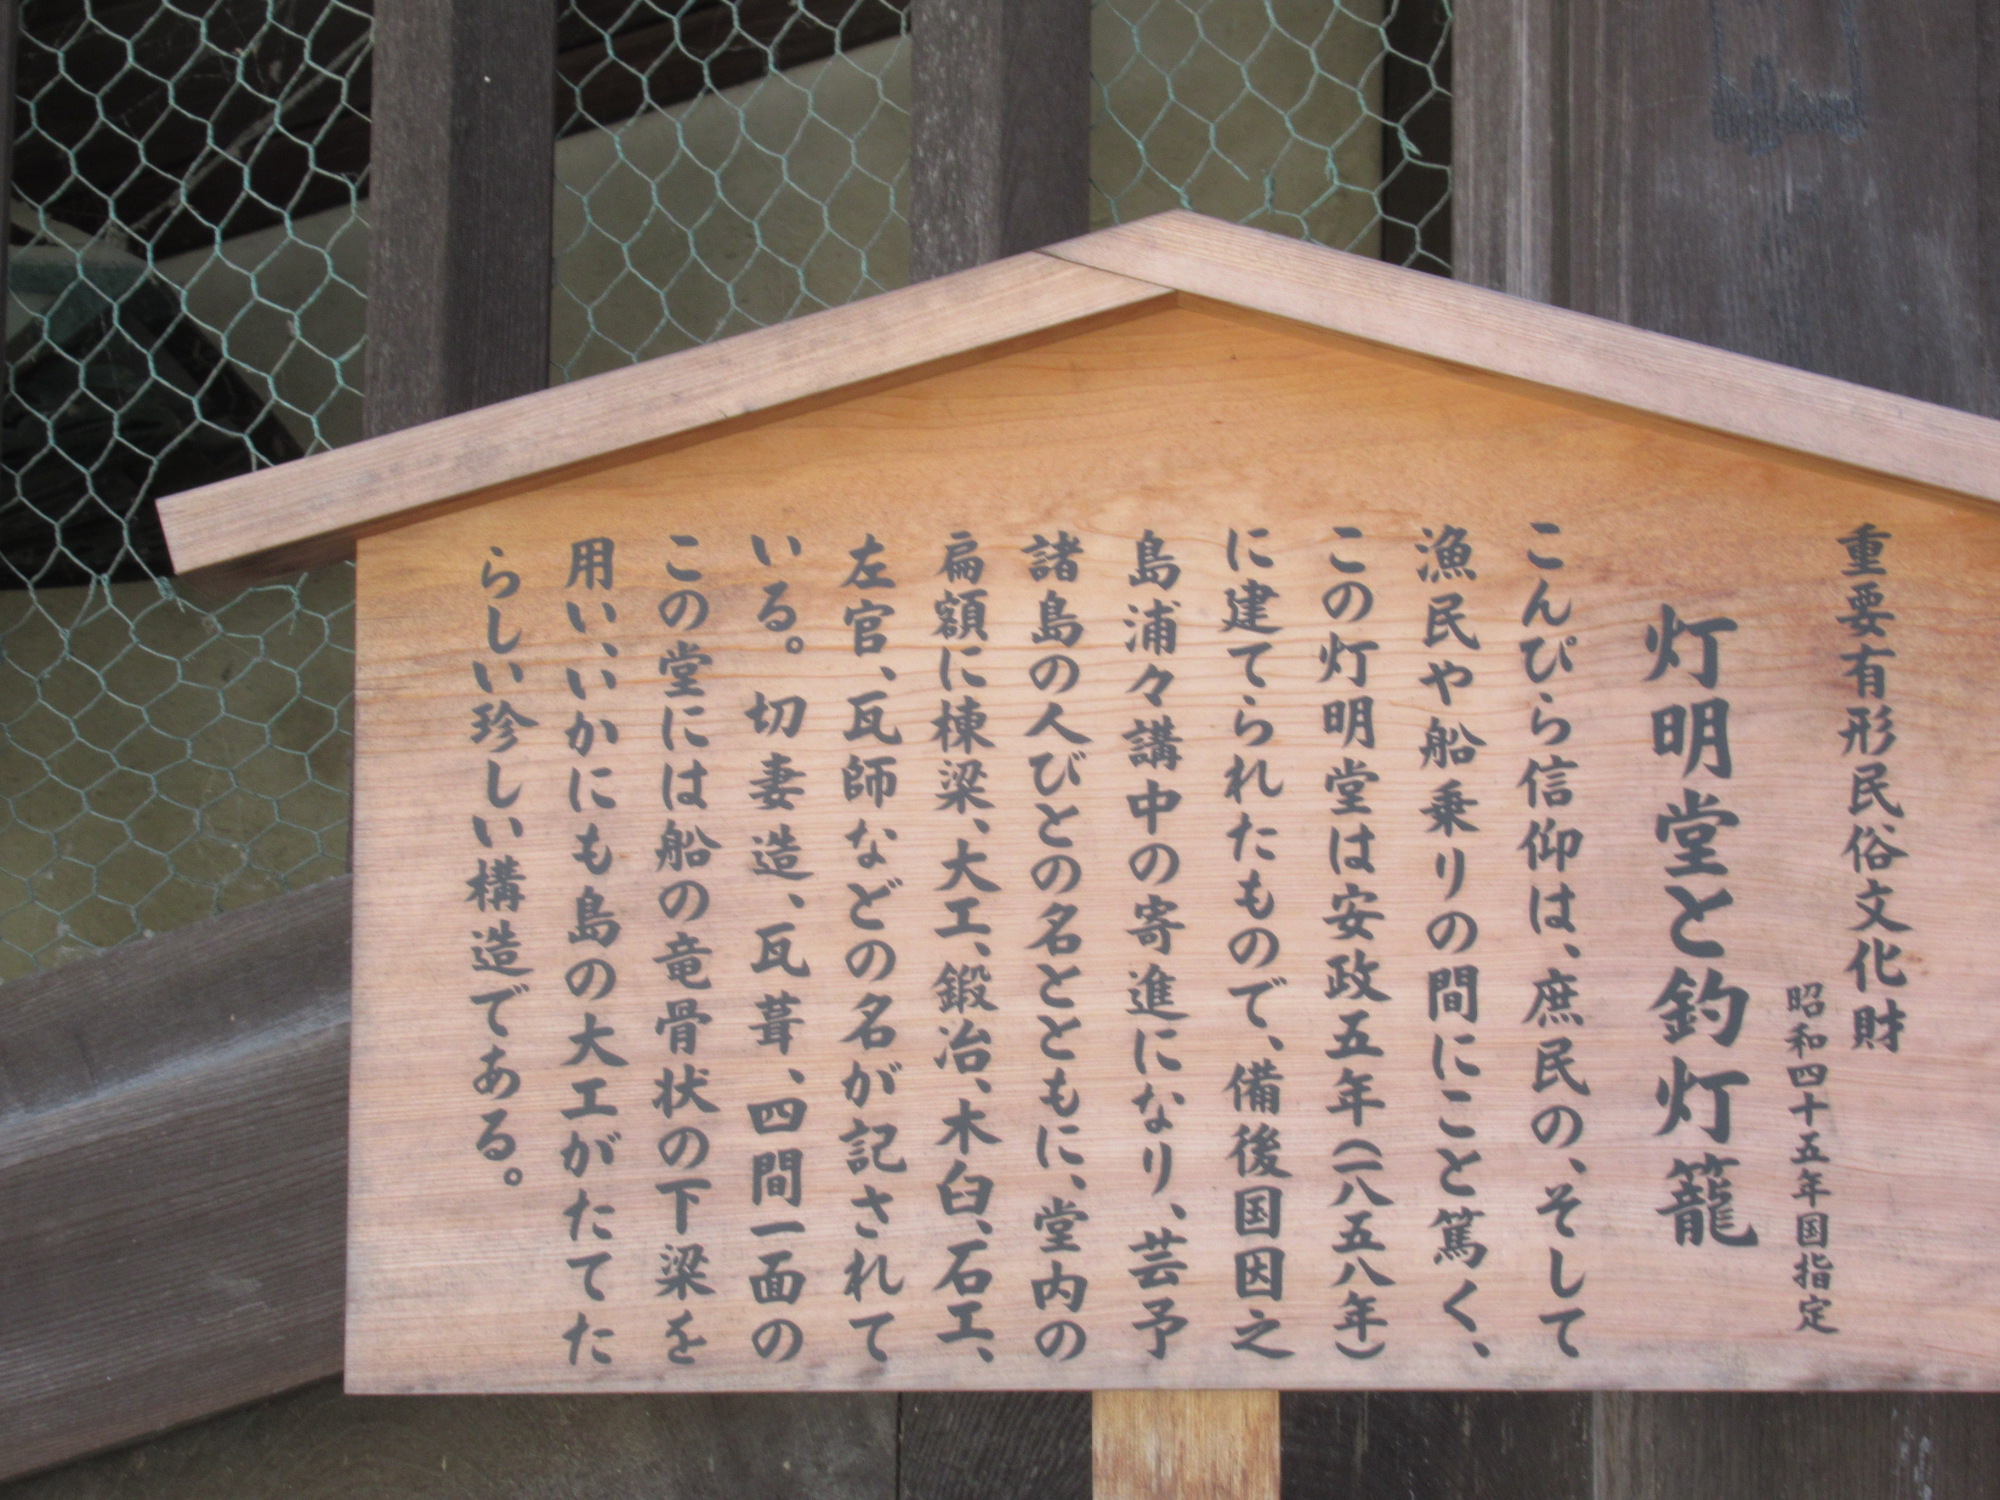 重要有形民俗文化財
昭和四十五年国指定
灯明堂と釣灯籠
こんぴら信仰は、庶民の、そして
漁民や船乗りの間にこと篤く、
この灯明堂は安政五年(一八五八年)
に建てられたもので、備後国因之
島浦々講中の寄進になり、芸予
諸島の人びとの名とともに、堂内の
扁額に棟梁、大工、鍛冶、木臼、石工、
左官、瓦師などの名が記されて
いる。切妻造、瓦葺、四間一面の
この堂には船の竜骨状の下梁を
用い、いかにも島の大工がたてた
らしい珍しい構造である。